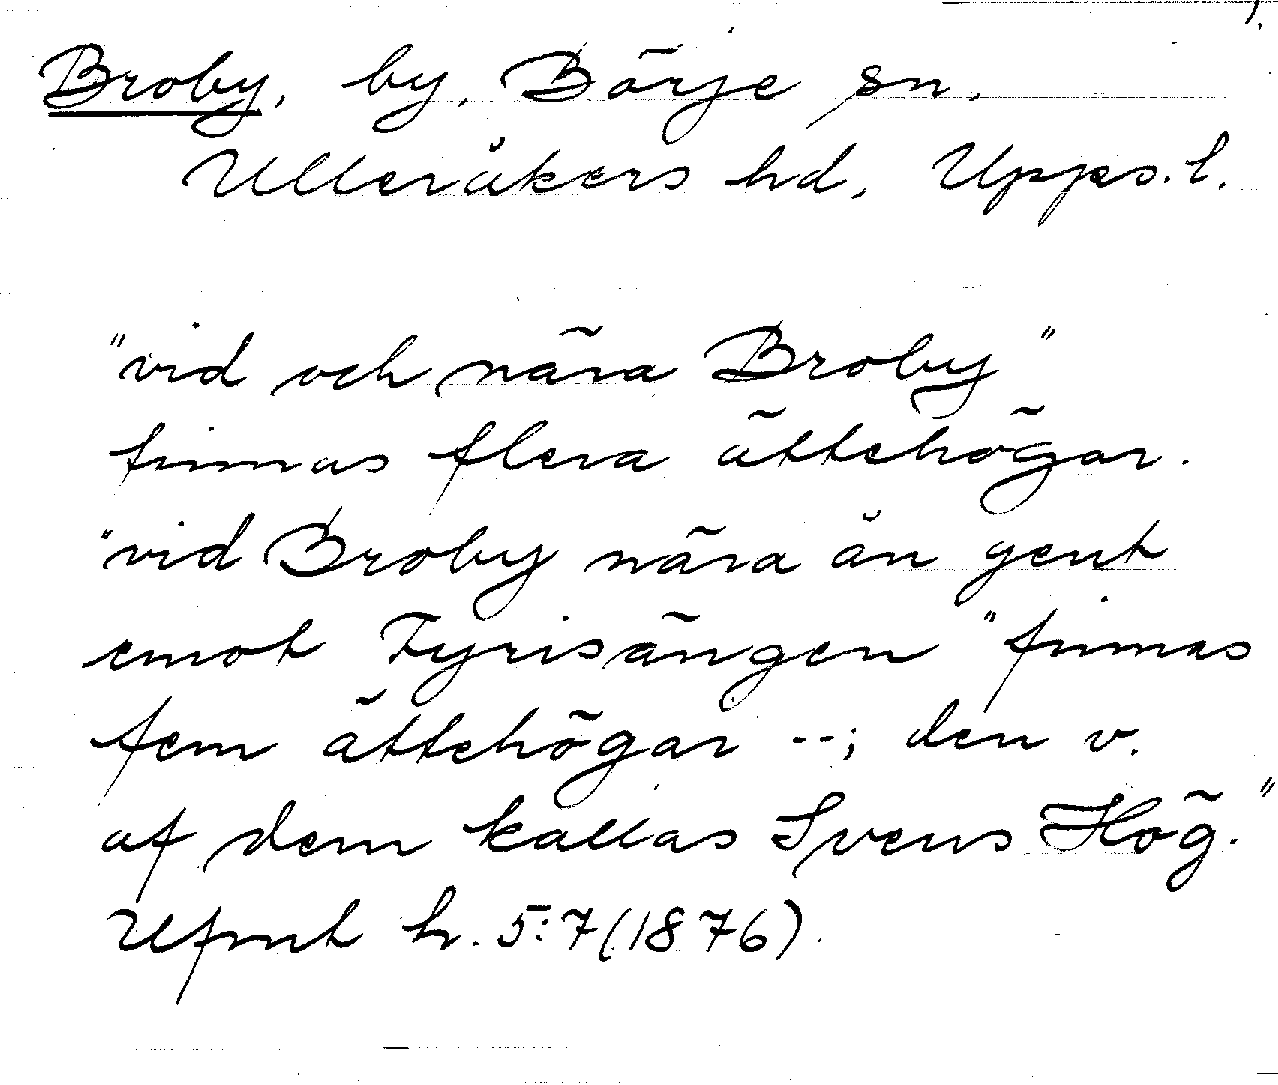 Broby, by, Börje sn,
Ulleråkers hd, Upps.l.
"vid och nära Broby"
finnas flera ättehögar.
"vid Broby nära ån gent
emot Fyrisängen" finnas
fem ättehögar --; den v.
af dem kallas Svens Hög."
Ufmt h. 5:7 (1876).